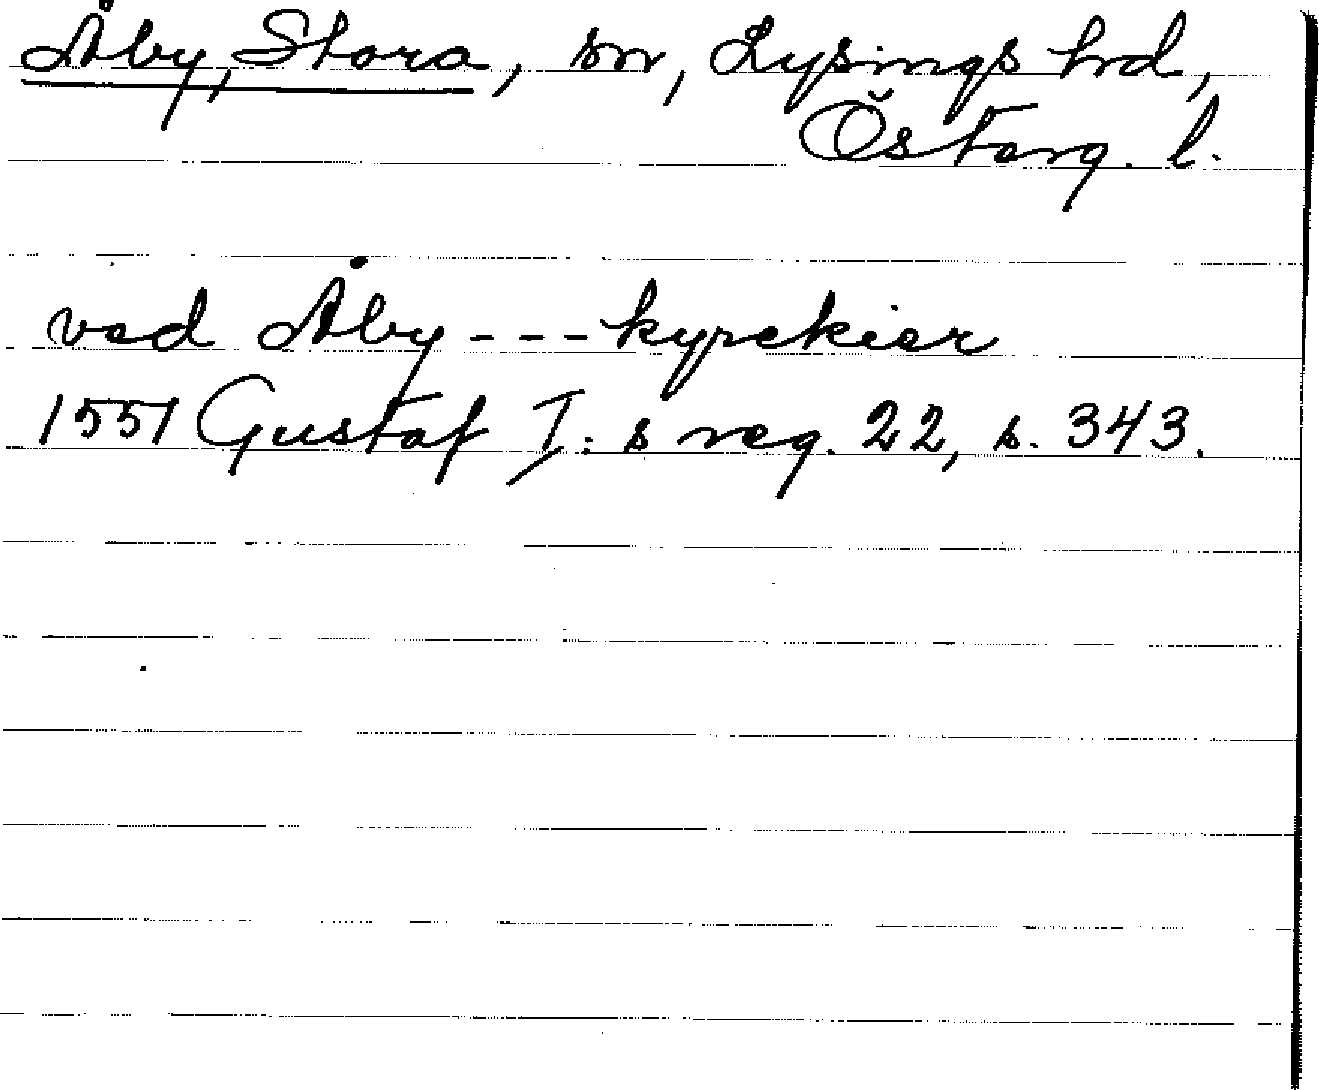 Åby, Stora, sn, Lysings hrd,
Österg. l.
ved Åby --- kyrckier
1551 Gustaf I:s reg. 22, s. 343.